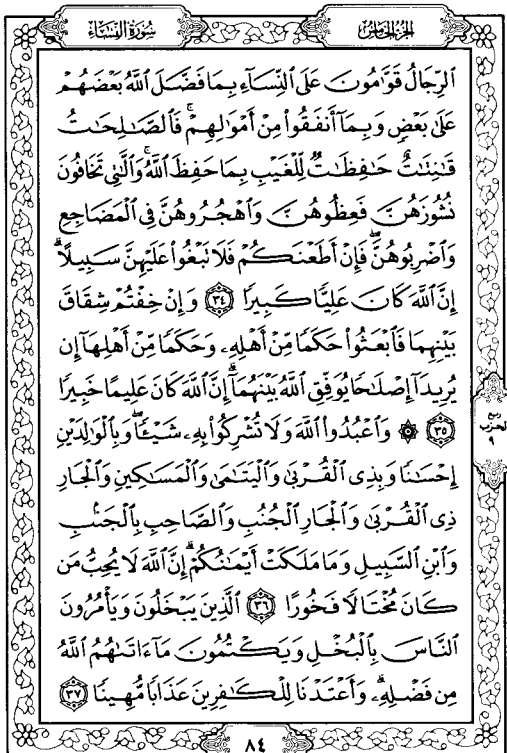 الجزء الخامس
سورة النساء
ٱلرِّجَالُ قَوَّٰمُونَ عَلَى ٱلنِّسَآءِ بِمَا فَضَّلَ ٱللَّهُ بَعْضَهُمْ
عَلَىٰ بَعْضٍ وَبِمَآ أَنفَقُوا۟ مِنْ أَمْوَٰلِهِمْ ۚ فَٱلصَّٰلِحَٰتُ
قَٰنِتَٰتٌ حَٰفِظَٰتٌ لِّلْغَيْبِ بِمَا حَفِظَ ٱللَّهُ ۚ وَٱلَّٰتِى تَخَافُونَ
نُشُوزَهُنَّ فَعِظُوهُنَّ وَٱهْجُرُوهُنَّ فِى ٱلْمَضَاجِعِ
وَٱضْرِبُوهُنَّ ۖ فَإِنْ أَطَعْنَكُمْ فَلَا تَبْغُوا۟ عَلَيْهِنَّ سَبِيلًا ۗ
إِنَّ ٱللَّهَ كَانَ عَلِيًّا كَبِيرًا ٣٤ وَإِنْ خِفْتُمْ شِقَاقَ
بَيْنِهِمَا فَٱبْعَثُوا۟ حَكَمًا مِّنْ أَهْلِهِۦ وَحَكَمًا مِّنْ أَهْلِهَآ إِن
يُرِيدَآ إِصْلَٰحًا يُوَفِّقِ ٱللَّهُ بَيْنَهُمَآ ۗ إِنَّ ٱللَّهَ كَانَ عَلِيمًا خَبِيرًا
٣٥ ۞ وَٱعْبُدُوا۟ ٱللَّهَ وَلَا تُشْرِكُوا۟ بِهِۦ شَيْـًٔا ۖ وَبِٱلْوَٰلِدَيْنِ
ربع
الحزب
٩
إِحْسَٰنًا وَبِذِى ٱلْقُرْبَىٰ وَٱلْيَتَٰمَىٰ وَٱلْمَسَٰكِينِ وَٱلْجَارِ
ذِى ٱلْقُرْبَىٰ وَٱلْجَارِ ٱلْجُنُبِ وَٱلصَّاحِبِ بِٱلْجَنۢبِ
وَٱبْنِ ٱلسَّبِيلِ وَمَا مَلَكَتْ أَيْمَٰنُكُمْ ۗ إِنَّ ٱللَّهَ لَا يُحِبُّ مَن
كَانَ مُخْتَالًا فَخُورًا ٣٦ ٱلَّذِينَ يَبْخَلُونَ وَيَأْمُرُونَ
ٱلنَّاسَ بِٱلْبُخْلِ وَيَكْتُمُونَ مَآ ءَاتَىٰهُمُ ٱللَّهُ
مِن فَضْلِهِۦ ۗ وَأَعْتَدْنَا لِلْكَٰفِرِينَ عَذَابًا مُّهِينًا ٣٧
٨٤